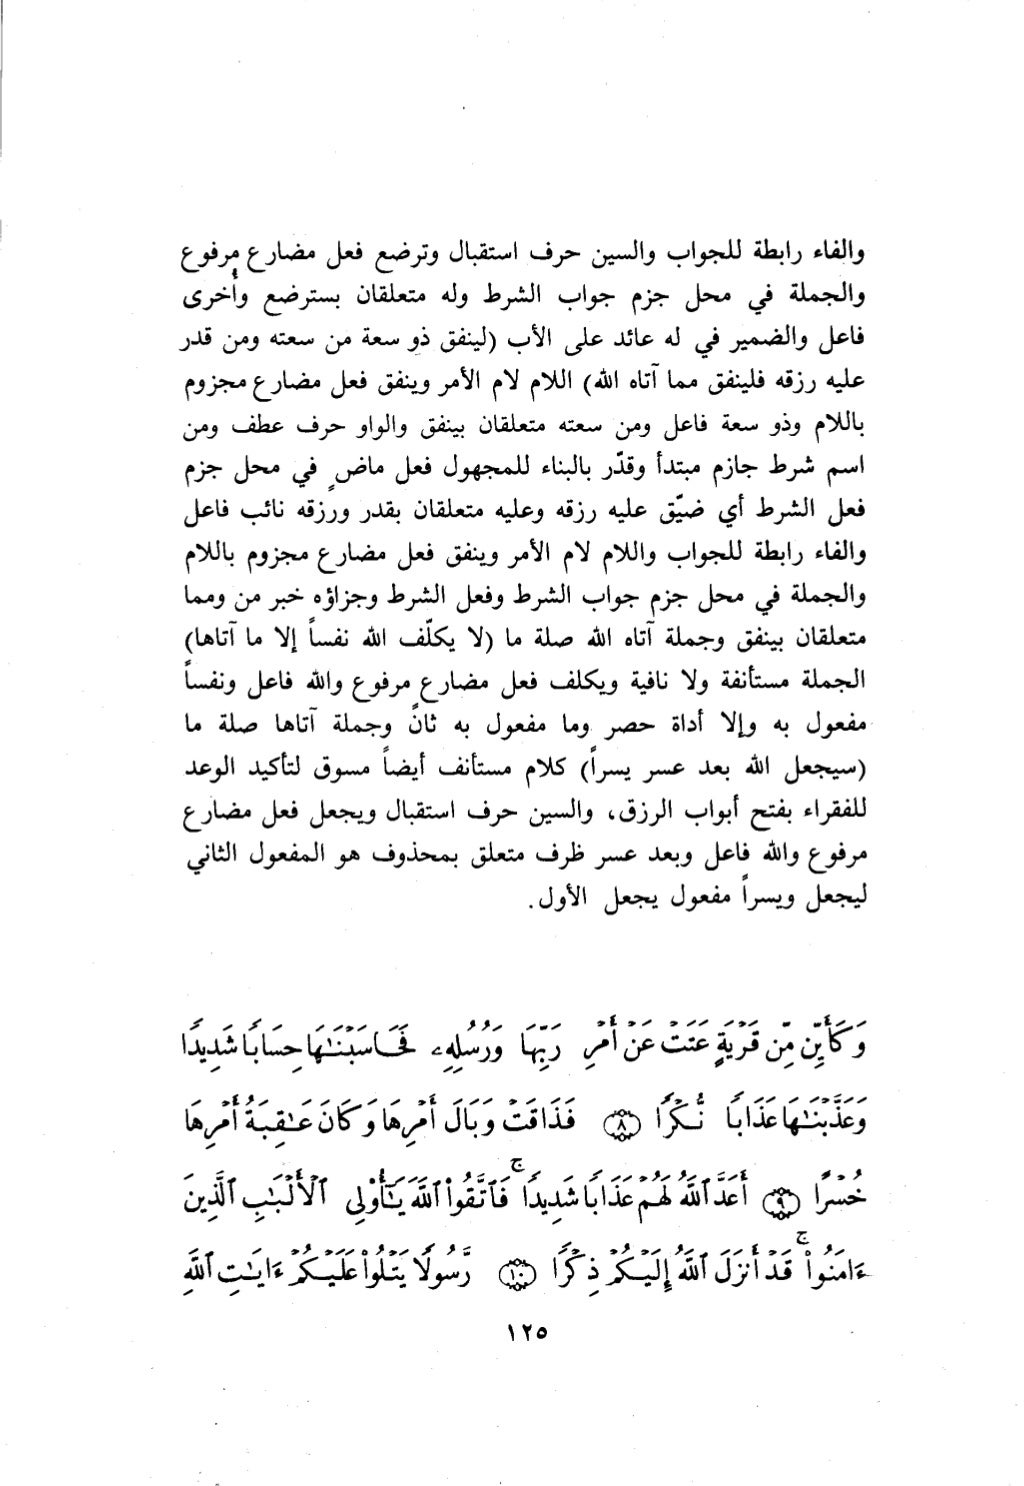 والفاء رابطة للجواب والسين حرف استقبال وترضع فعل مضارع مرفوع
والجملة في محل جزم جواب الشرط وله متعلقان بسترضع وأُخرى
فاعل والضمير في له عائد على الأب (لينفق ذو سعة من سعته ومن قدر
عليه رزقه فلينفق مما آتاه الله) اللام لام الأمر وينفق فعل مضارع مجزوم
باللام وذو سعة فاعل ومن سعته متعلقان بينفق والواو حرف عطف ومن
اسم شرط جازم مبتدأ وقدّر بالبناء للمجهول فعل ماضٍ في محل جزم
فعل الشرط أي ضيّق عليه رزقه وعليه متعلقان بقدر ورزقه نائب فاعل
والفاء رابطة للجواب واللام لام الأمر وينفق فعل مضارع مجزوم باللام
والجملة في محل جزم جواب الشرط وفعل الشرط وجزاؤه خبر من ومما
متعلقان بينفق وجملة آتاه الله صلة ما (لا يكلّف الله نفساً إلا ما آتاها)
الجملة مستأنفة ولا نافية ويكلف فعل مضارع مرفوع والله فاعل ونفساً
مفعول به وإلا أداة حصر وما مفعول به ثانٍ وجملة آتاها صلة ما
(سيجعل الله بعد عسر يسراً) كلام مستأنف أيضاً مسوق لتأكيد الوعد
للفقراء بفتح أبواب الرزق، والسين حرف استقبال ويجعل فعل مضارع
مرفوع والله فاعل وبعد عسر ظرف متعلق بمحذوف هو المفعول الثاني
ليجعل ويسراً مفعول يجعل الأول.
وَكَأَيِّن مِّن قَرْيَةٍ عَتَتْ عَنْ أَمْرِ رَبِّهَا وَرُسُلِهِۦ فَحَاسَبْنَٰهَا حِسَابًا شَدِيدًا
وَعَذَّبْنَٰهَا عَذَابًا نُّكْرًا ٨ فَذَاقَتْ وَبَالَ أَمْرِهَا وَكَانَ عَٰقِبَةُ أَمْرِهَا
خُسْرًا ٩ أَعَدَّ ٱللَّهُ لَهُمْ عَذَابًا شَدِيدًا ۖ فَٱتَّقُوا۟ ٱللَّهَ يَٰٓأُو۟لِى ٱلْأَلْبَٰبِ ٱلَّذِينَ
ءَامَنُوا۟ ۚ قَدْ أَنزَلَ ٱللَّهُ إِلَيْكُمْ ذِكْرًا ١٠ رَّسُولًا يَتْلُوا۟ عَلَيْكُمْ ءَايَٰتِ ٱللَّهِ
١٢٥